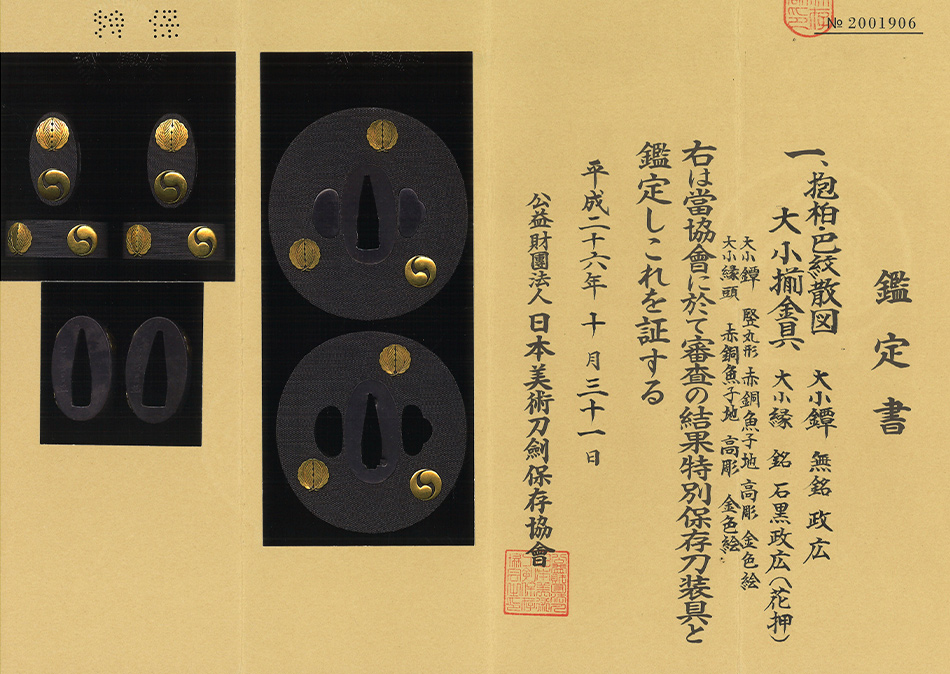 № 2001906
特 保
鑑定書
一、抱柏・巴紋散図 大小鐔 無銘 政広
大小揃金具 大小縁 銘 石黒政広(花押)
大小鐔 竪丸形 赤銅魚子地 高彫 金色絵
大小縁頭 赤銅魚子地 高彫 金色絵
右は當協會に於て審査の結果特別保存刀装具と
鑑定しこれを証する
平成二十六年 十月三十一日
公益財團法人 日本美術刀剣保存協會